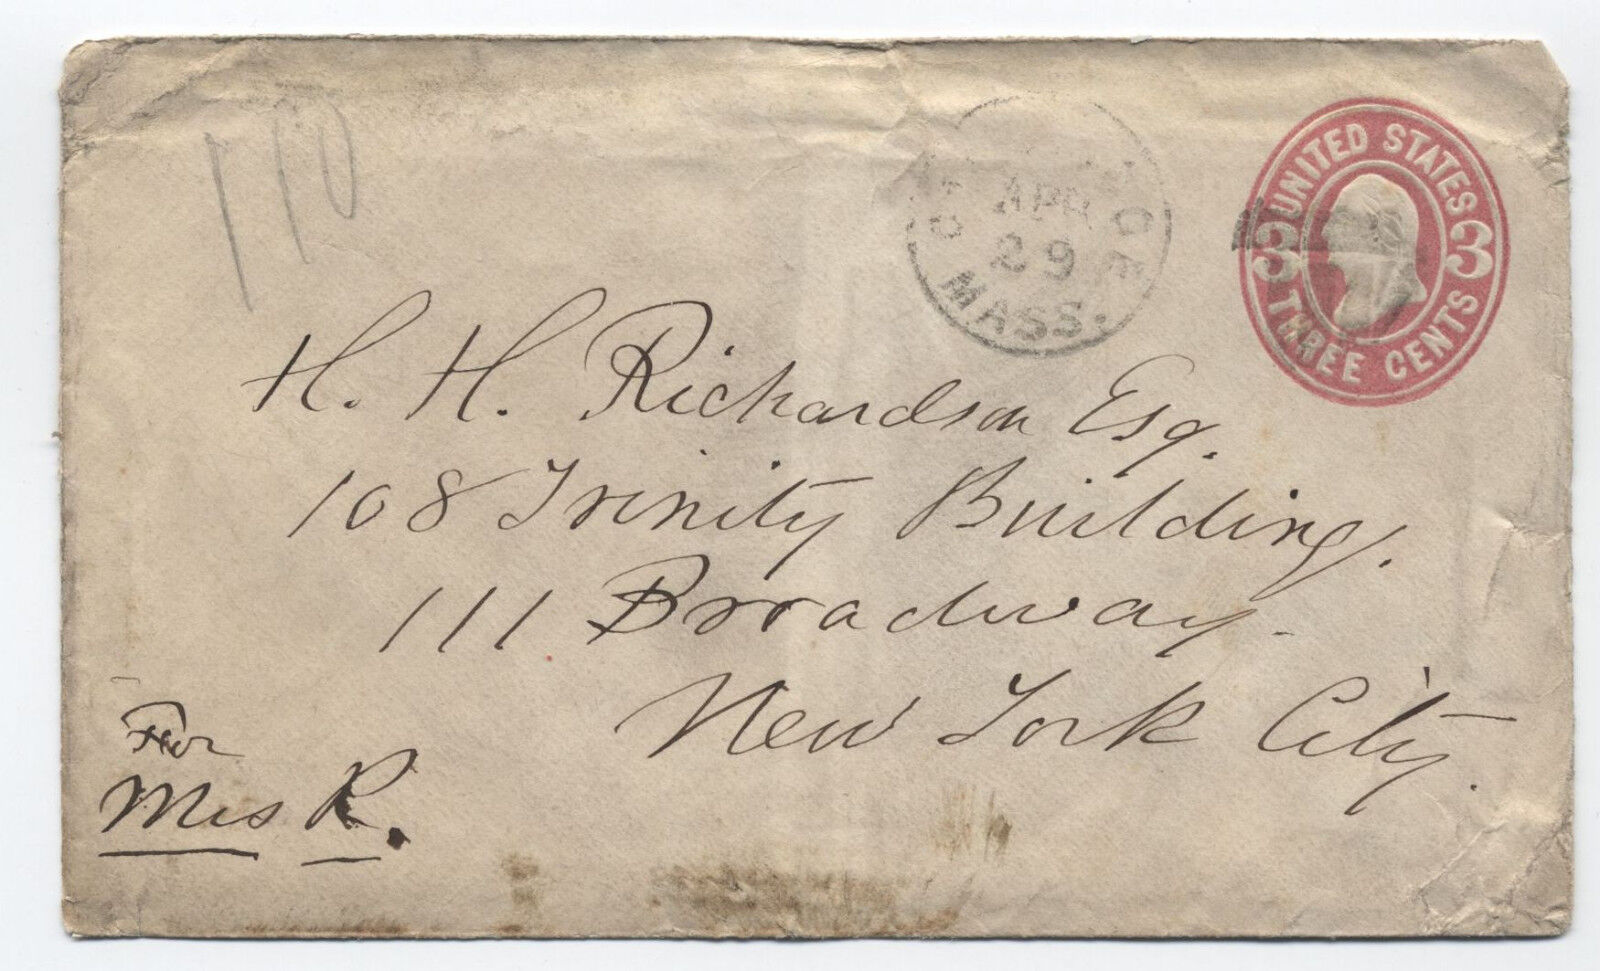 110
APR
29
MASS.
UNITED STATES
3 3
THREE CENTS
H. H. Richardson Esq.
108 Trinity Building.
111 Broadway.
New York City.
For
Mrs R.